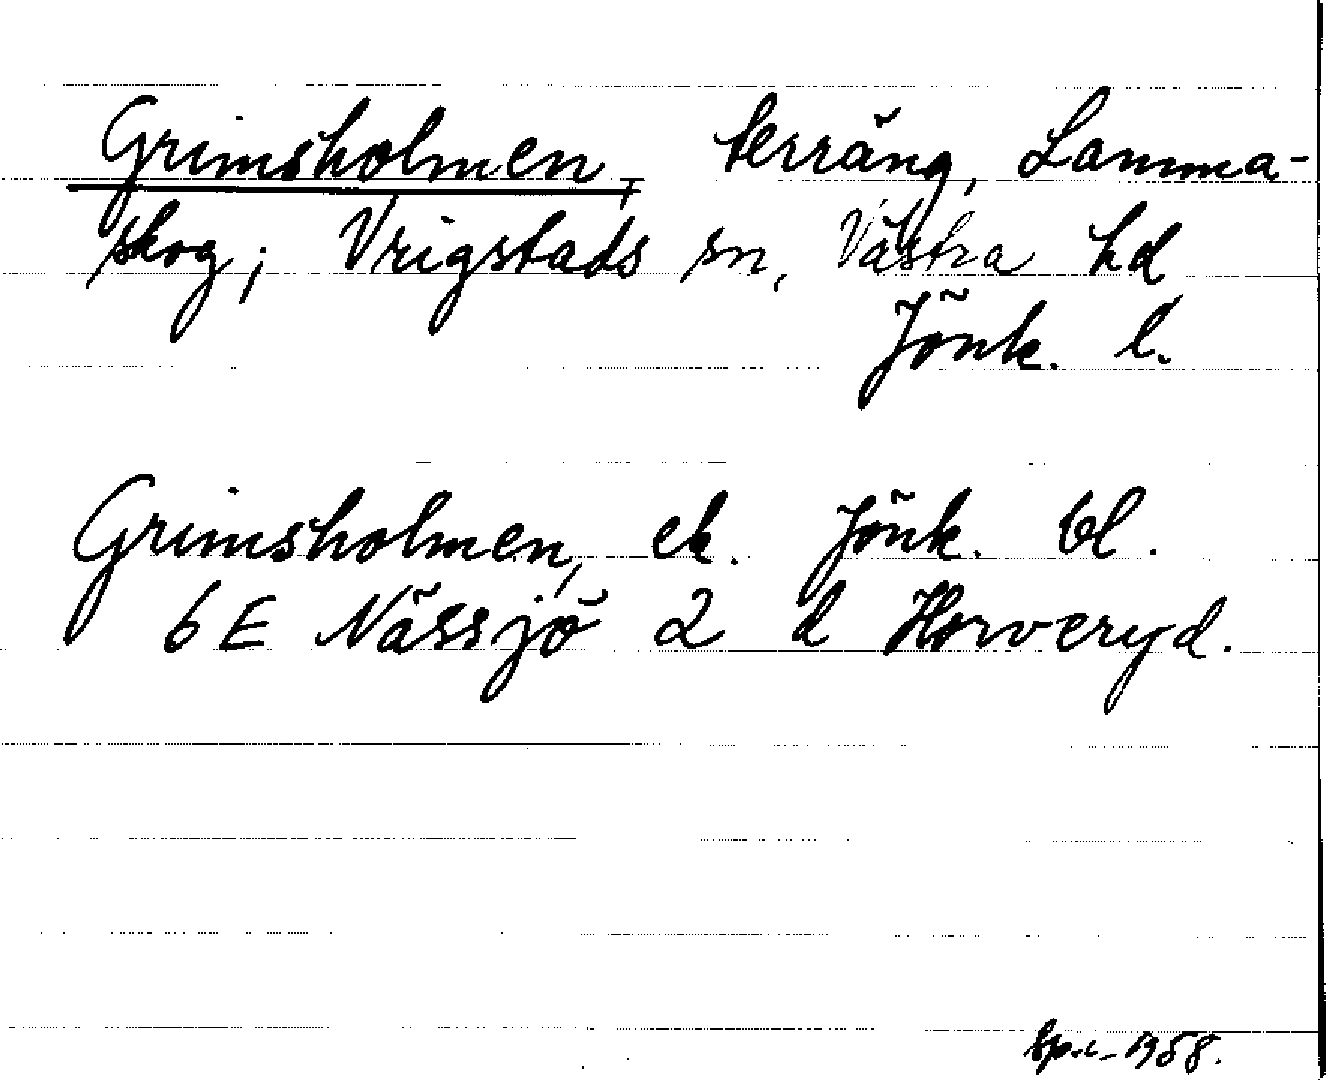 Grimsholmen, terräng, Lamma-
skog; Vrigstads sn, Västra hd
Jönk. l.
Grimsholmen, ek. Jönk. bl.
6 E Nässjö 2 d Horveryd.
1958.